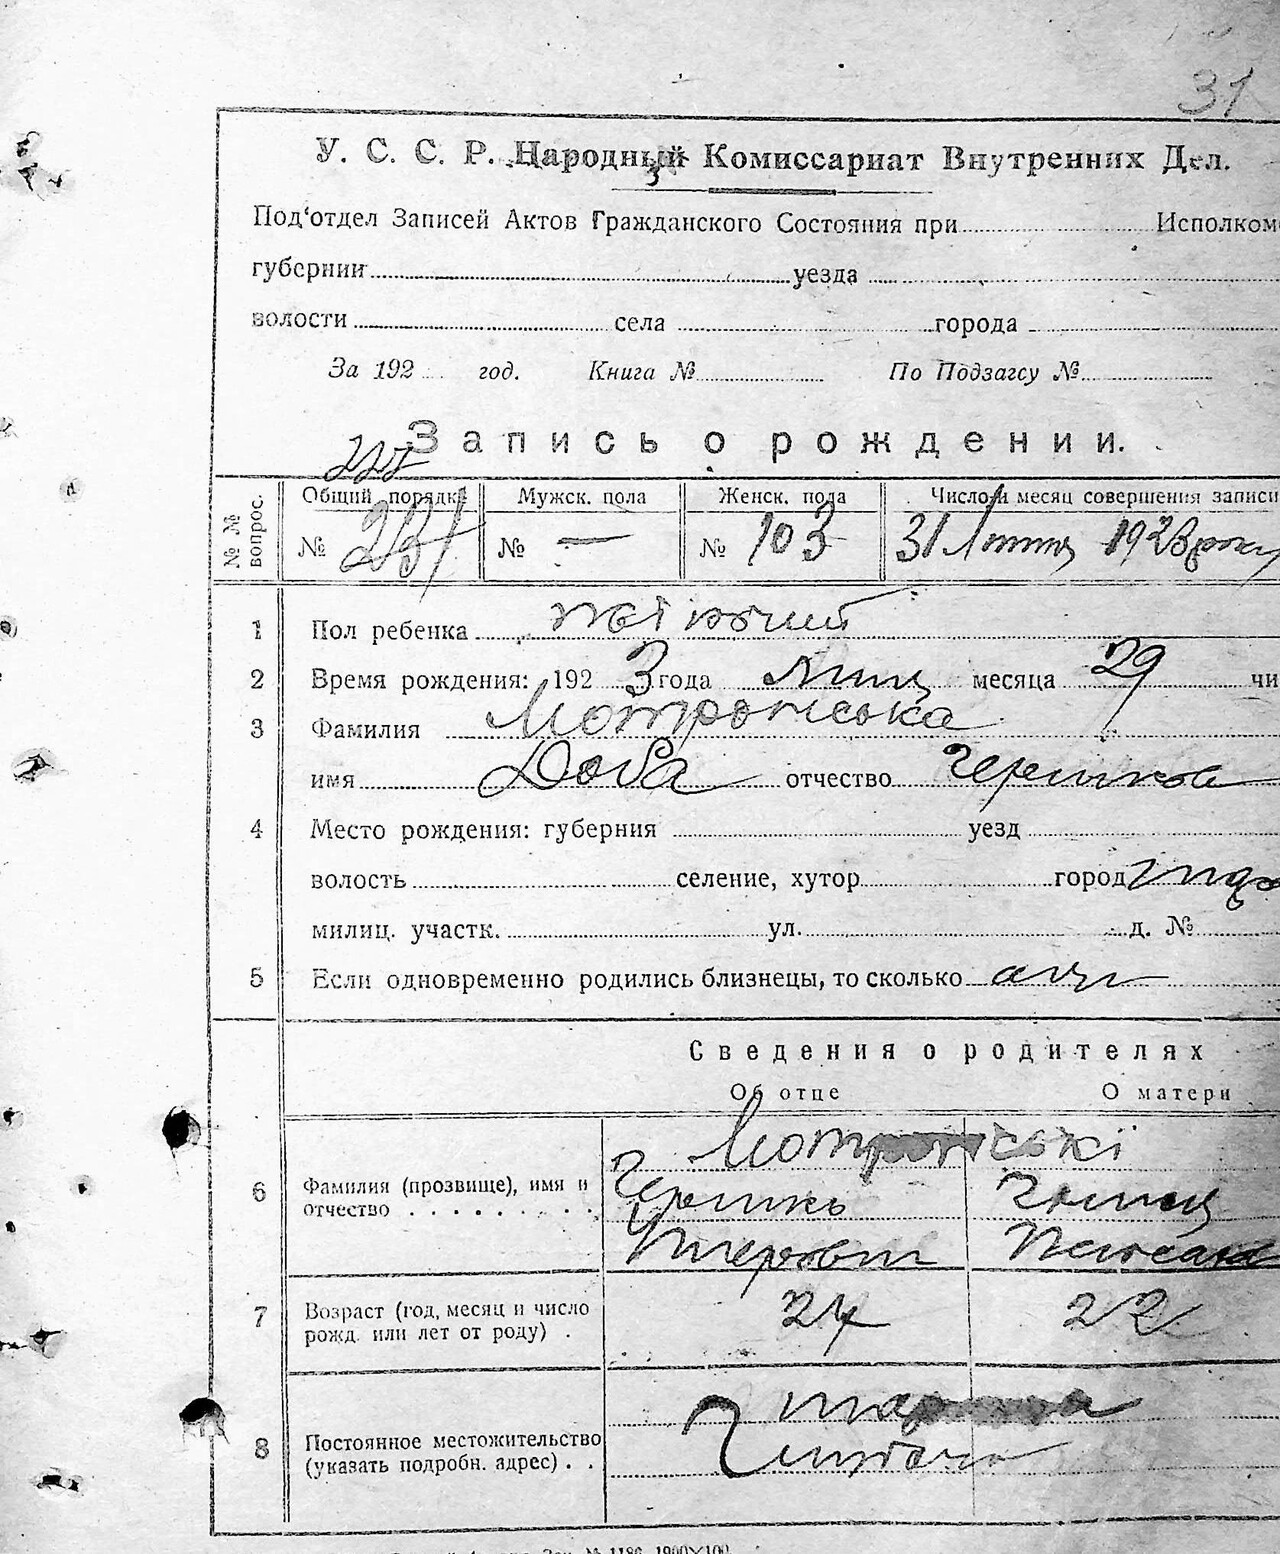 31
У. С. С. Р. Народный Комиссариат Внутренних Дел.
Под‘отдел Записей Актов Гражданского Состояния при Исполком
губернии уезда
волости села города
За 192 год. Книга № По Подзагсу №
Запись о рождении.
№ № вопрос.
Общий порядк Мужск. пола Женск. пола Число и месяц совершения записи
№ 231 № — № 103 31 1923 року
1 Пол ребенка жіночий
2 Время рождения: 192 3 года месяца 29 чи
3 Фамилия Мотронська
имя Доба отчество
4 Место рождения: губерния уезд
волость селение, хутор город
милиц. участк. ул. д. №
5 Если одновременно родились близнецы, то сколько
Сведения о родителях
Об отце О матери
Мотронські
6 Фамилия (прозвище), имя и
отчество
7 Возраст (год, месяц и число
рожд. или лет от роду) . 24 22
8 Постоянное местожительство
(указать подробн. адрес) . .